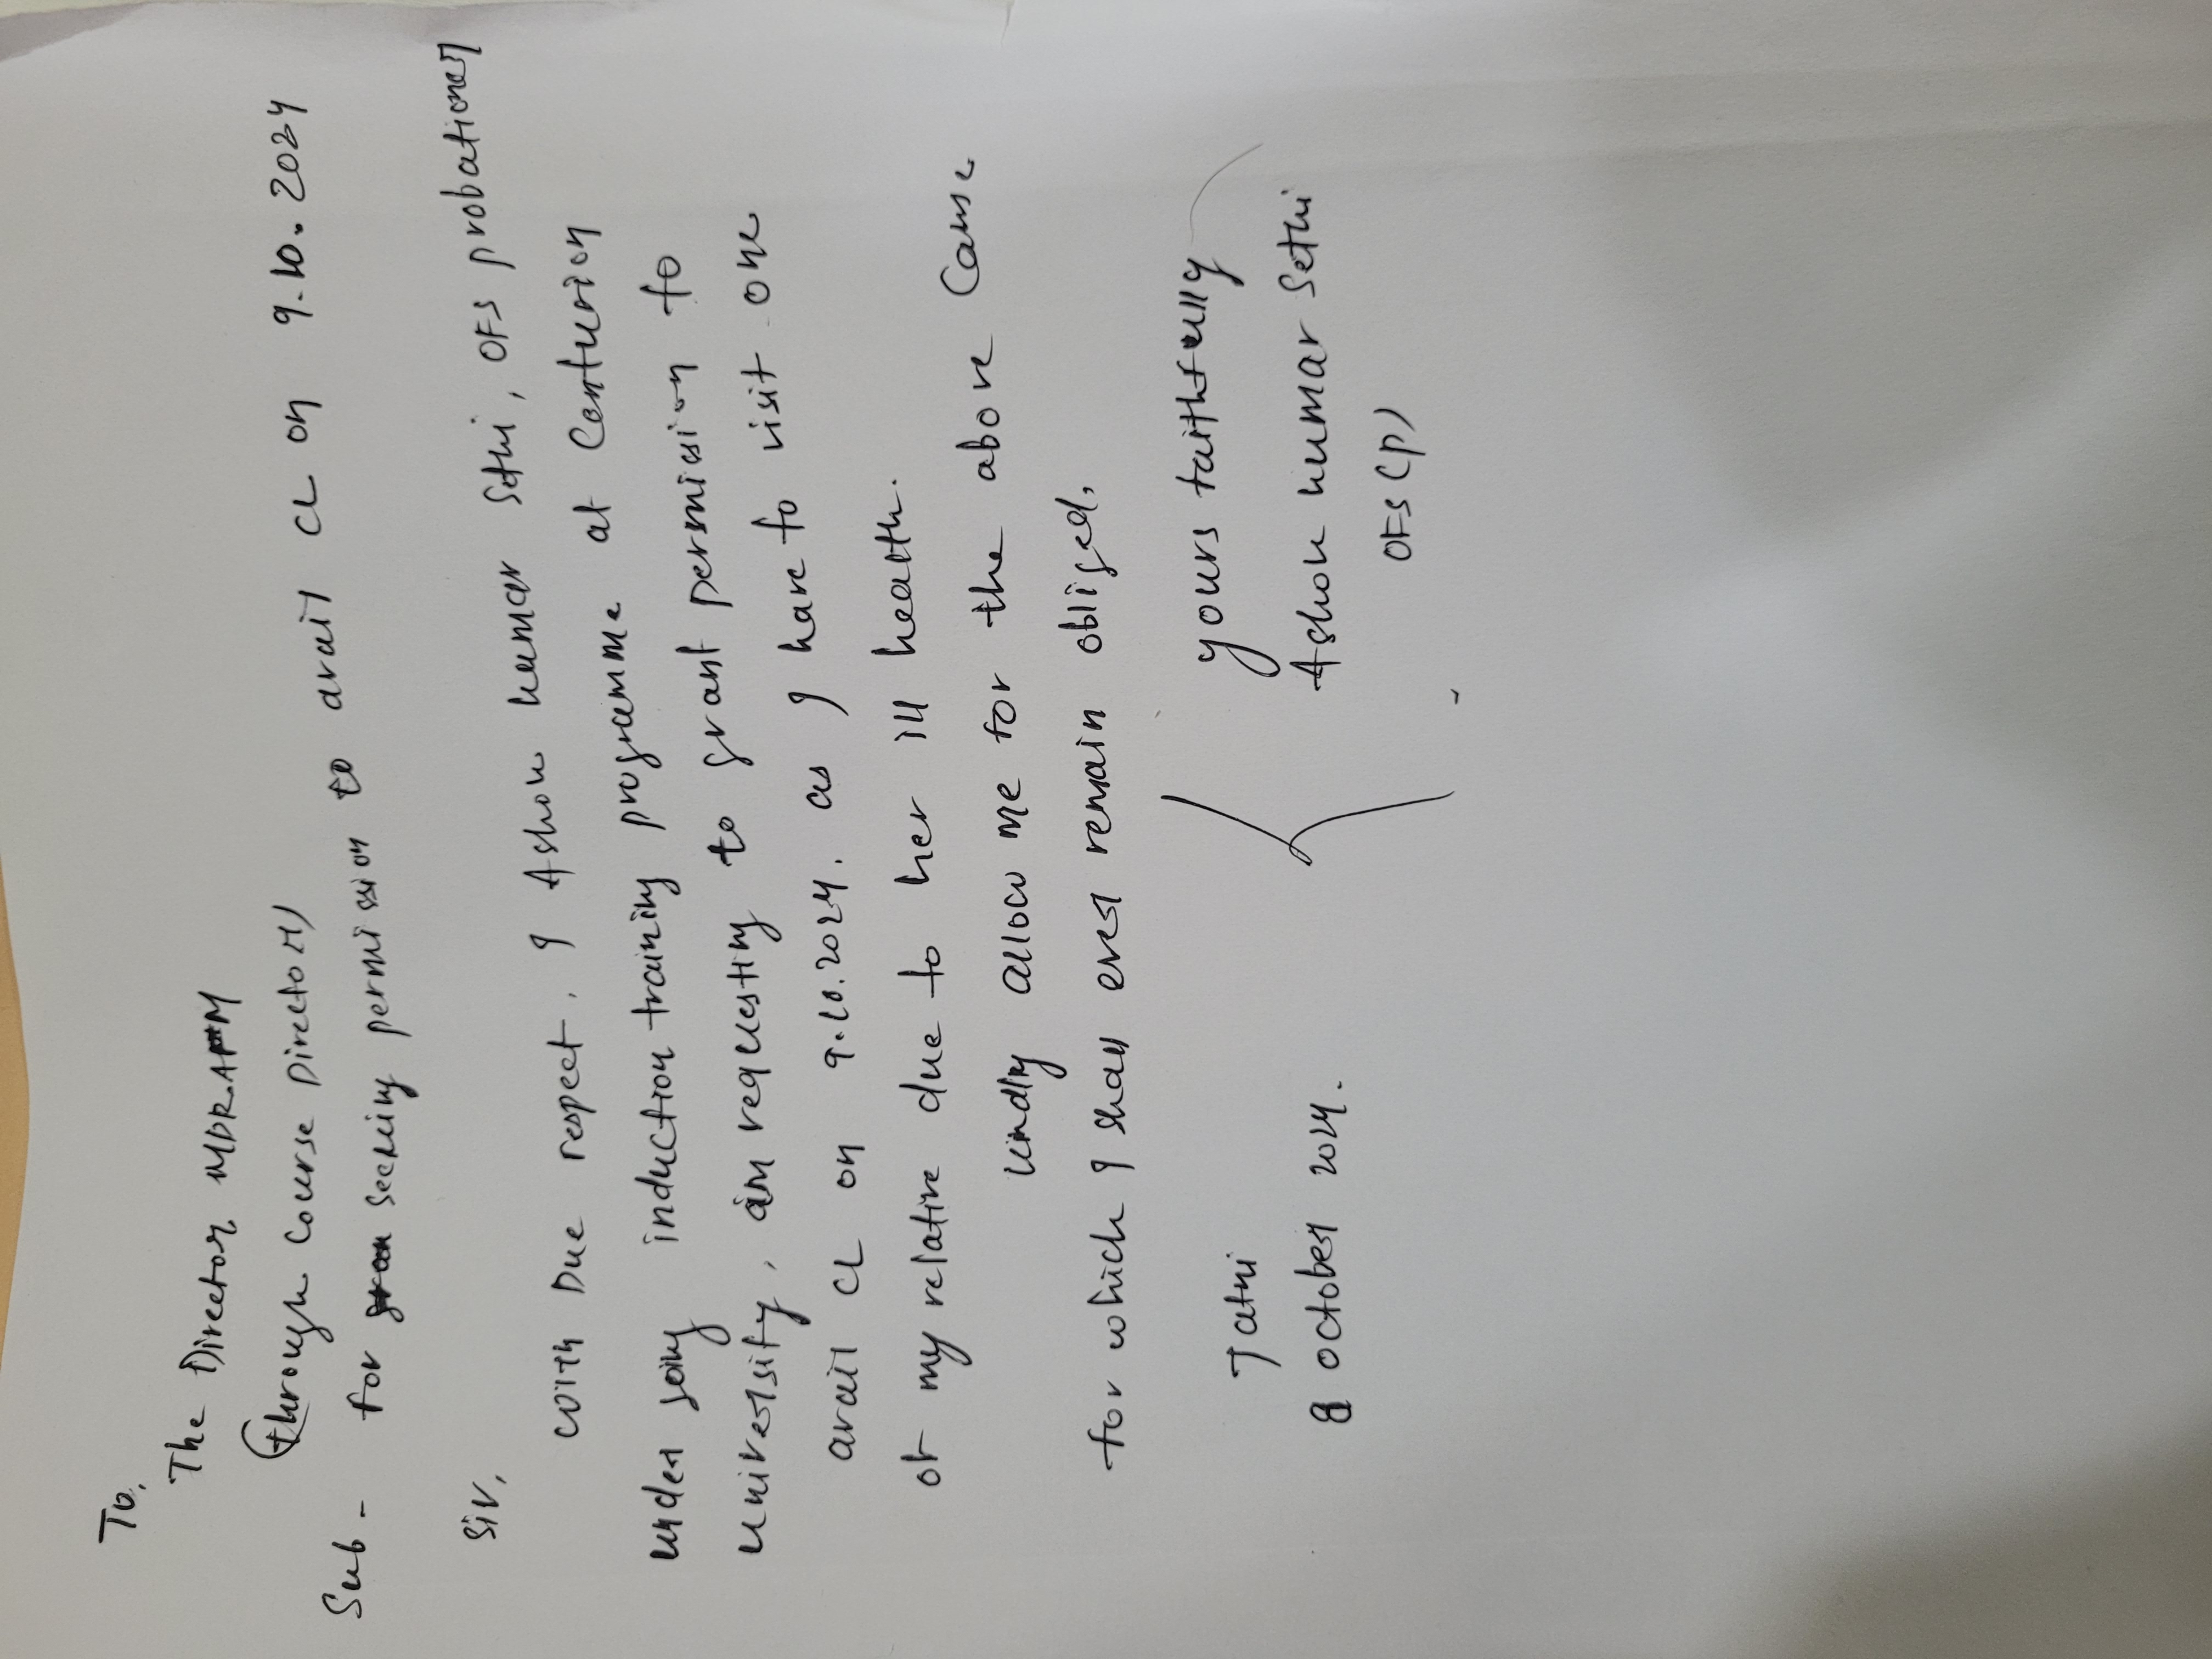 To,
The Director MDRAFM
(through Course Director)
Sub - for seeking permission to avail CL on 9.10.2024
Sir,
With Due respect, I Ashok kumar Sethi, OFS probationer
under going induction training programme at Centurion
University, am requesting to grant permission to
avail CL on 9.10.2024. as I have to visit one
of my relative due to her ill health.
kindly allow me for the above Cause
for which I shall ever remain obliged.
yours faithfully
Jatni
Ashok kumar Sethi
8 October 2024.
OFS (P)